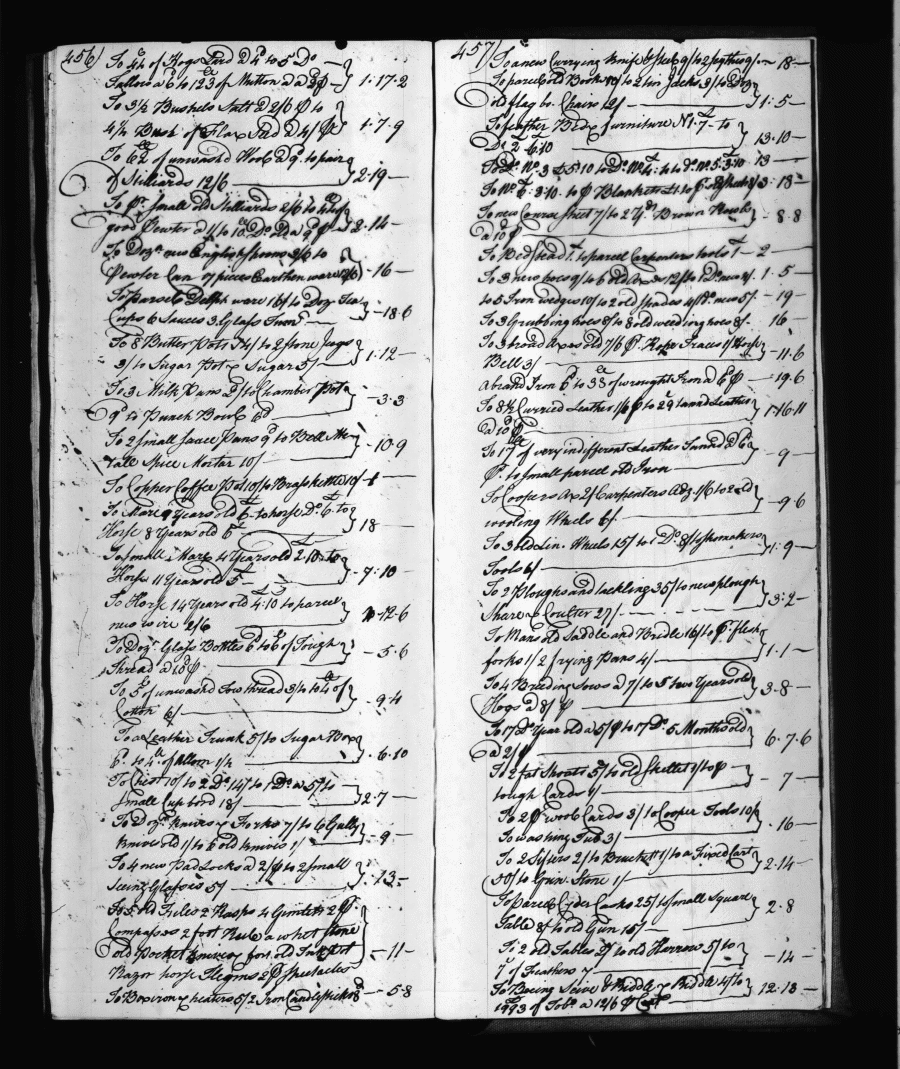 456
To 44 of Hogs Lard a 4d to 5 Do
Tallow a 6 to 123 of Mutton a 2d 1.17.2
To 3½ Bushels Salt a 2/6 to
4½ Bush of Flax Seed a 4/ 1.7.9
To 62 of unwash'd Wool a 9d to pair
of Stilliards 12/6 2.19
To pr small old Stilliards 2/6 to
good Pewter a 1/ to 10 Do old a 2.14
To Doz new English spoons 3/6 to
Pewter Can 7 pieces Earthen ware 16
To parcel Delph ware 16/ to Doz Tea
Cups 6 Sauces 3 Glass 18.6
To 8 Butter Pots to 2 stone Jugs
3/ to Sugar Pot & Sugar 5/ 1.12
To 3 Milk Pans 2/ to Chamber Pot
9d to Punch Bowl 6d 3.3
To 2 Small Sauce Pans 9d to Bell Me
tall Spice Mortar 10/ 10.9
To Copper Coffee Pot 10/ to Brass Kettle 10/ 1
To Mare 9 Years old 6 to horse Do 6 to
Horse 8 Years old 6 18
To small Mare 4 Years old 2.10 to
Horse 11 Years old 5 7:10
To Horse 14 Years old 4:10 to parcel
new wire 2/6 12.6
To Doz Glass Bottles 6 to 6 of Tough
Thread a 10d 5.6
To 5 of unwash'd Tow thread 3/ to 4 of
Cotton 6/ 9.4
To a Leather Trunk 5/ to Sugar Box
6d to 4 of Allom 1/4 6.10
To Chest 10/ to 2 Do 14/ to 1 Do a 5/ to
small Cup bord 18/ 2.7
To Doz Knives & Forks 7/ to 6 Gully
knives old 1/ to 6 old knives 1/ 9
To 4 new Pad Locks a 2/ to 2 small
Seeing Glasses 5/ 13
To 5 old Files 2 Hasps 4 Gimlets 2
Compasses 2 foot Rule a whet stone
old Pocket knives fors. old Ink Pot 11
Razor horse Flegms 2 Spectacles
To Box iron & heaters 5/ 2 Iron Candlesticks 8d 5.8
457
To a new Currying Knife & Steel 9/ to 2 scythes 9/ 18
To parcel old Books 10/ to 2 two Jacks 3/ to Doz
old flag bo. Chairs 12/ 1:5
To feather Bed & furniture No 1.7 to
Do 2 6.10 13.10
To Do No 3 5:10 to Do No 4 to Do No 5:3:10 13
To No 6:3.10 to Blankets 3:18
To new Course sheet 7/ to 2 yds Brown
a 10d 8.8
To Bedstead 1 to parcel Carpenters tools 1 2
To 3 new hoes 9/ to 6 old Axes 12/ to 1 Do new 4/ 1.5
to 5 Iron wedges 10/ to 2 old spades 4/ Do new 5/ 19
To 3 Grubbing hoes 8/ to 8 old weeding hoes 8/ 16
To 3 broad Axes old 7/6 Rope Traces 1/ Horse
Bell 3/ 11.6
a brand Iron 6d to 38 of wrought Iron a 6d 19.6
To 8½ Curried Leather 1/6 to 29 tannd Leather
a 10d 1.16.11
To 17 of very indifferent Leather Tannd a 6d
to small parcel old Iron 9
To Coopers Ax 2/ Carpenters Adz 1/6 to 2 old
wooling Wheels 6/ 9.6
To 3 old Lin. Wheels 15/ to 1 Do 8/ to Shomakers
Tools 6/ 1.9
To 2 Ploughs and tackling 35/ to new plough
Share & Coulter 27/ 3.2
To Mans old Saddle and Bridle 16/ to flesh
forks 1/ 2 frying Pans 4/ 1.1
To 4 Breeding Sows a 7/ to 5 two Years old
Hogs a 8/ 3.8
To 17 Do Year old a 5/ to 17 Do 5 Months old
a 2/ 6.7.6
To 2 fat Shoats 5/ to old Skellet 1/ to
tough Cards 1/ 7
To 2 wool Cards 3/ to Cooper Tools 10/
To washing Tub 3/ 16
To 2 Sifters 2/ to Bruckett 1/ to a Fixed Cart
50/ to Gun Stone 1/ 2.14
To parcel Cyder Casks 25/ to small Square
Table 8/ to old Gun 15/ 2.8
To 2 old Tables 2/ to old Harrow 5/ to
7 of Feathers 7 14
To Boeing Seive & Riddle & Riddle 4/ to
1993 of Tobo a 12/6 12.13